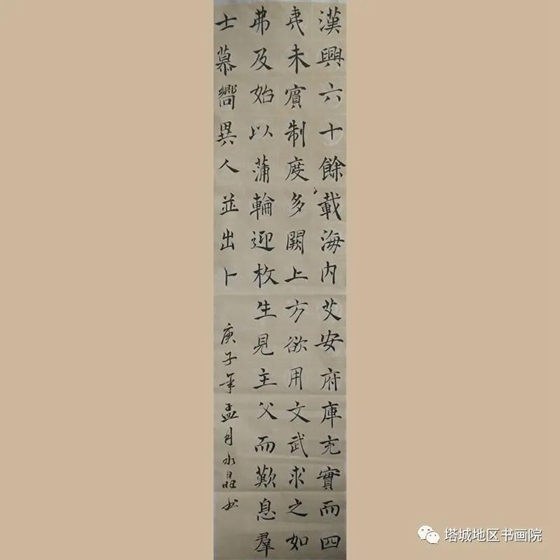 漢興六十餘載海内艾安府庫充實而四
夷未賓制度多闕上方欲用文武求之如
弗及始以蒲輪迎枚生見主父而歎息羣
士慕嚮異人並出卜
庚子年孟月水晶书
塔城地区书画院